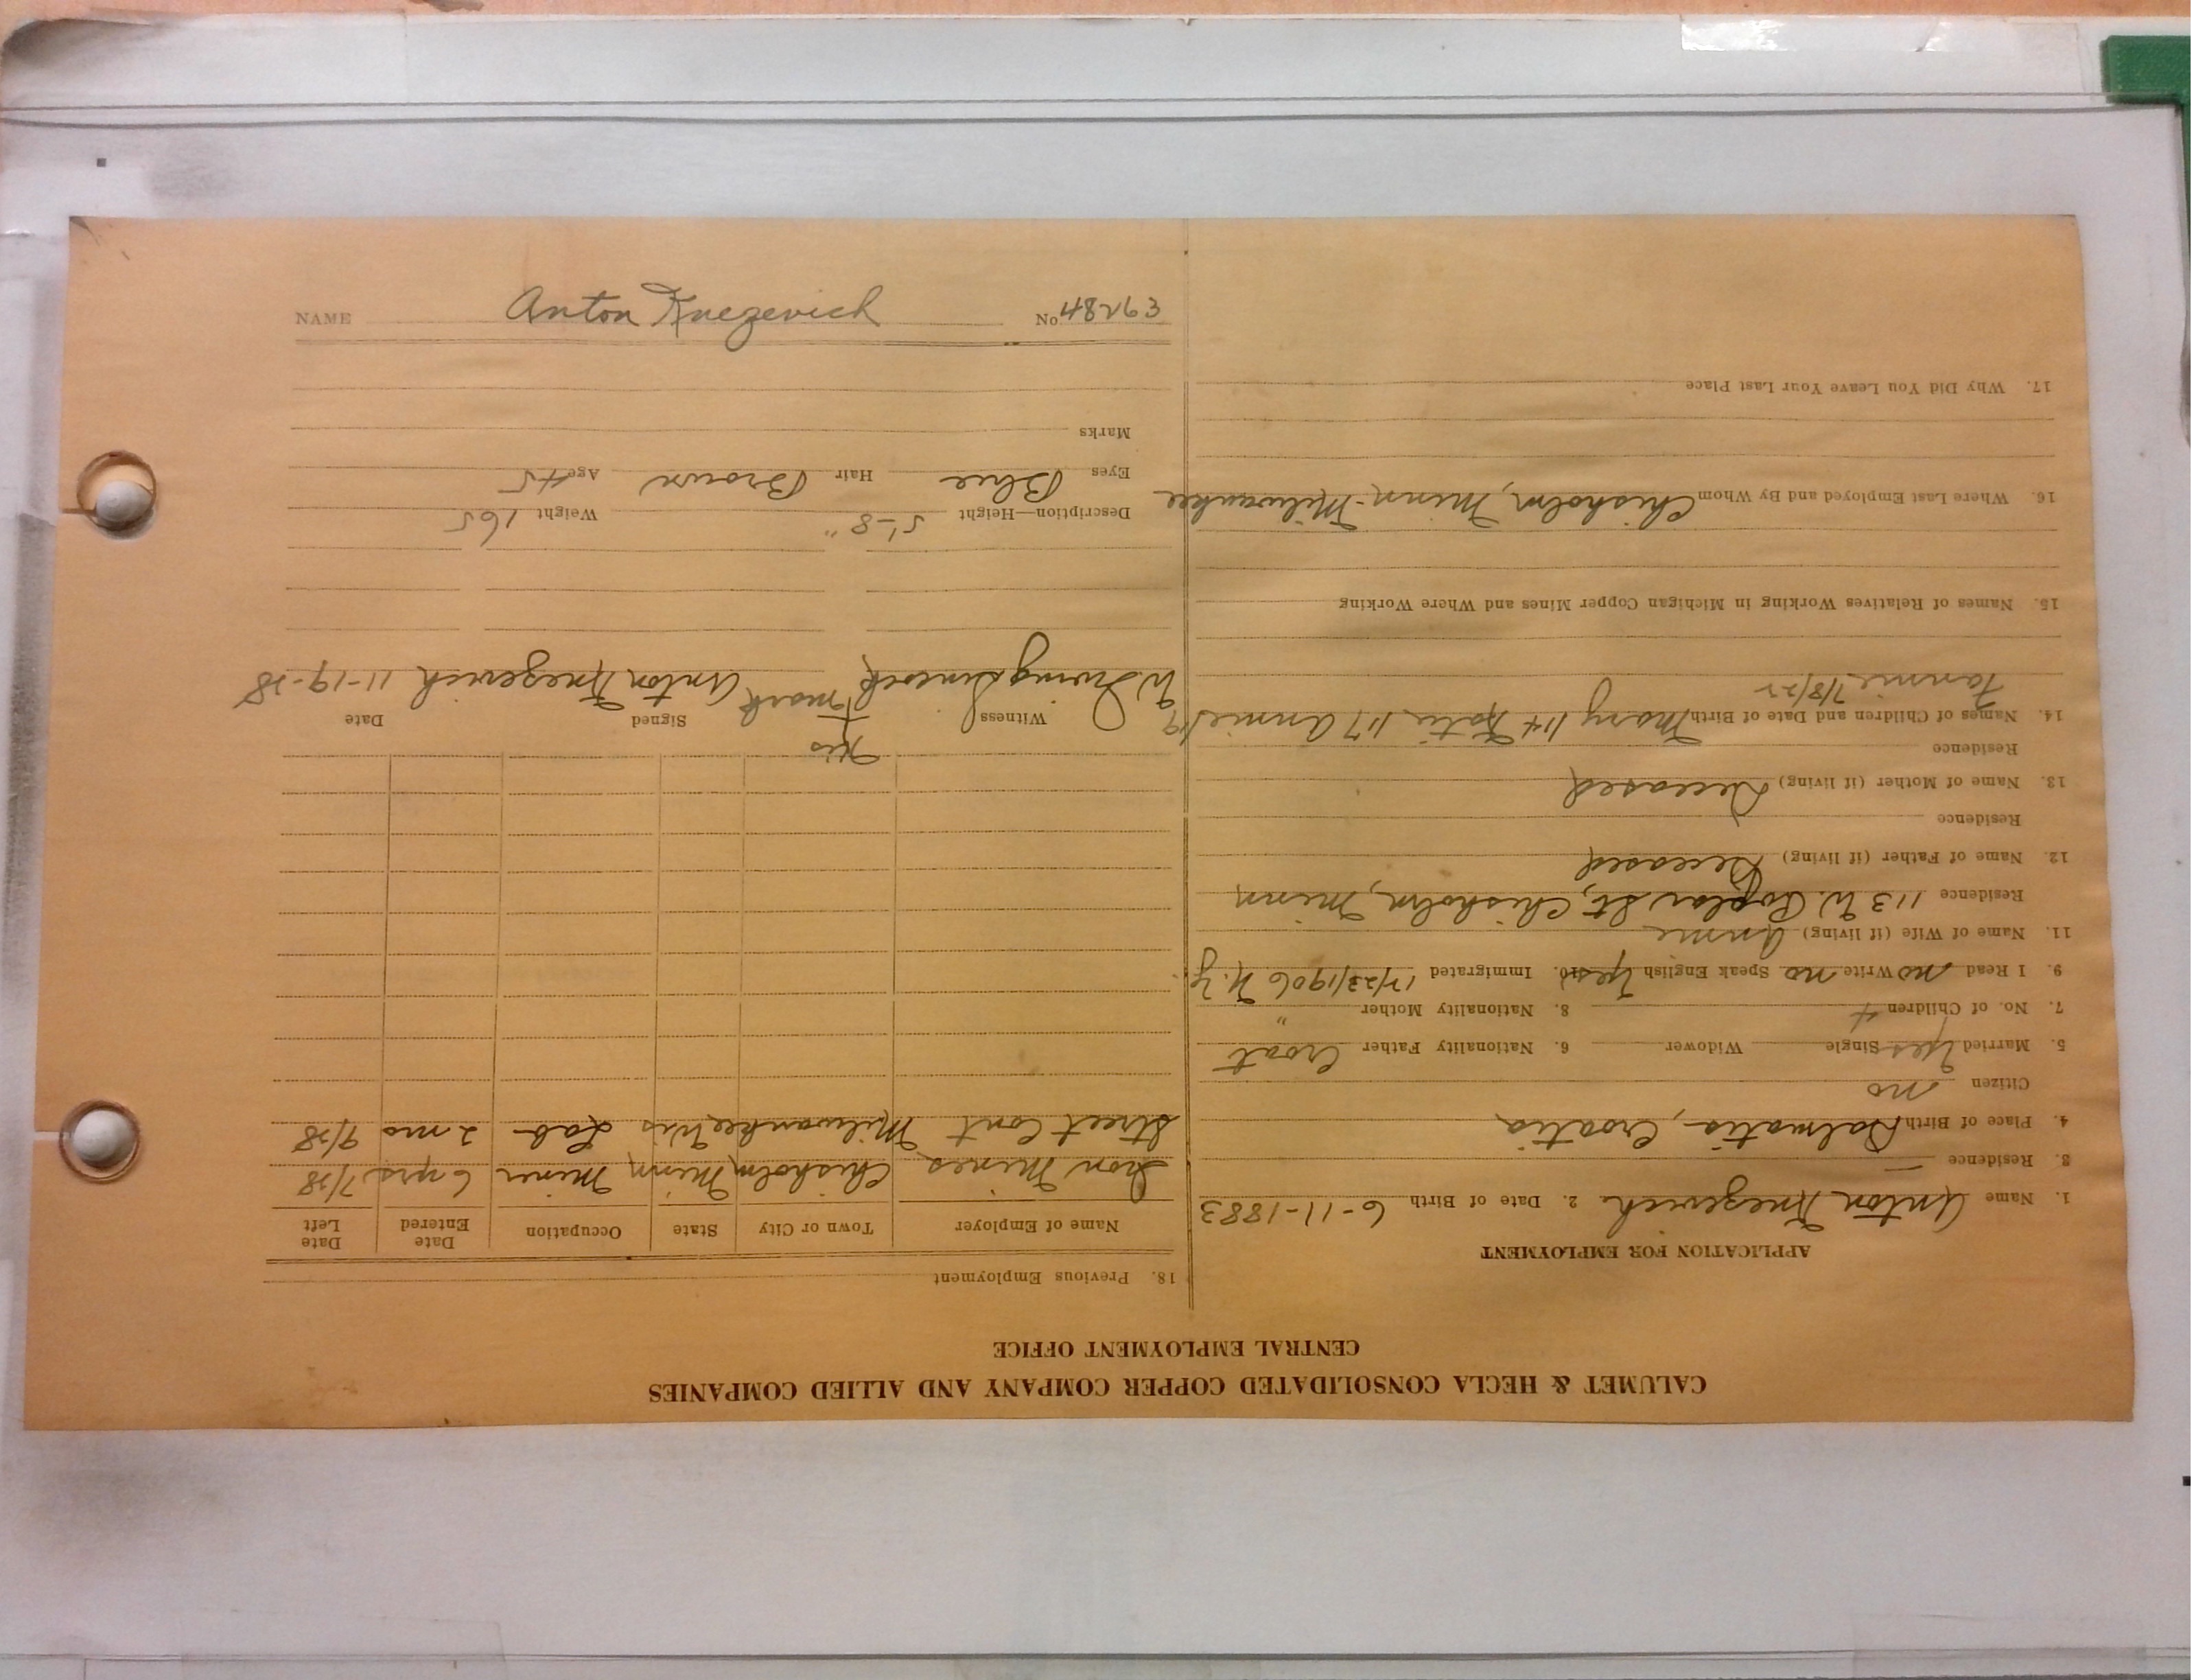 CALUMET & HECLA CONSOLIDATED COPPER COMPANY AND ALLIED COMPANIES
CENTRAL EMPLOYMENT OFFICE
APPLICATION FOR EMPLOYMENT
1. Name Anton Knezevich 2. Date of Birth 6-11-1883
3. Residence —
4. Place of Birth Dalmatia, Croatia
Citizen no
5. Married Yes Single Widower 6. Nationality Father Croat
7. No. of Children 4 8. Nationality Mother "
9. I Read no Write no Speak English Yes 10. Immigrated 12/23/1906 N.Y.
11. Name of Wife (if living) Annie
Residence 113 W. Poplar St, Chisholm, Minn
12. Name of Father (if living) Deceased
Residence
13. Name of Mother (if living) Deceased
Residence
14. Names of Children and Date of Birth Mary 1/14 Katie 1/17 Annie 1/19
Fannie 7/8/22
15. Names of Relatives Working in Michigan Copper Mines and Where Working
16. Where Last Employed and By Whom Chisholm, Minn - Milwaukee
17. Why Did You Leave Your Last Place
18. Previous Employment
Name of Employer Town or City State Occupation Date Entered Date Left
Iron Mines Chisholm Minn Miner 6 yrs 7/28
Street Cont Milwaukee Wis Lab 2 mo 9/28
Witness Signed Date
His
W. Irving mark Anton Knezevich 11-19-28
Description—Height 5'-8" Weight 165
Eyes Blue Hair Brown Age 45
Marks
NAME Anton Knezevich No 48263